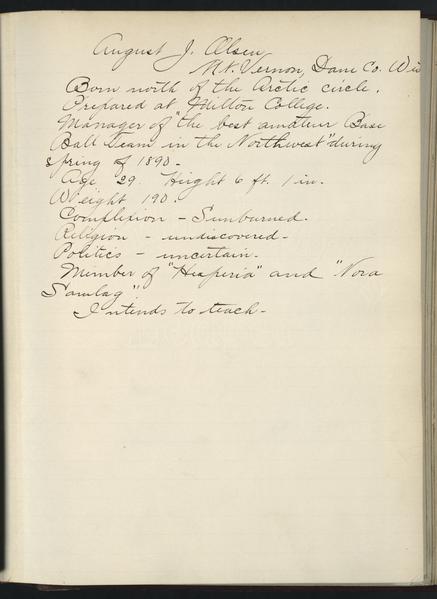 August J. Olsen,
Mt. Vernon, Dane Co. Wis
Born north of the Arctic circle.
Prepared at Milton College.
Manager of "the best amateur Base
Ball Team in the Northwest" during
spring of 1890.
Age 29. Hight 6 ft. 1 in.
Weight 190.
Complexion - Sunburned.
Religion - undiscovered.
Politics - uncertain.
Member of "Hesperia" and "Nora
Samlag"
Intends to teach.